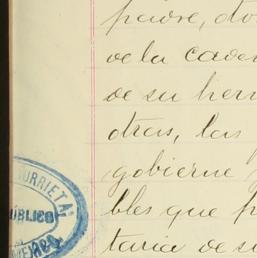 padre, do
de la cade
de su her
otras, las
gobierne
bles que p
taria de su
URRIETA
PÚBLICO